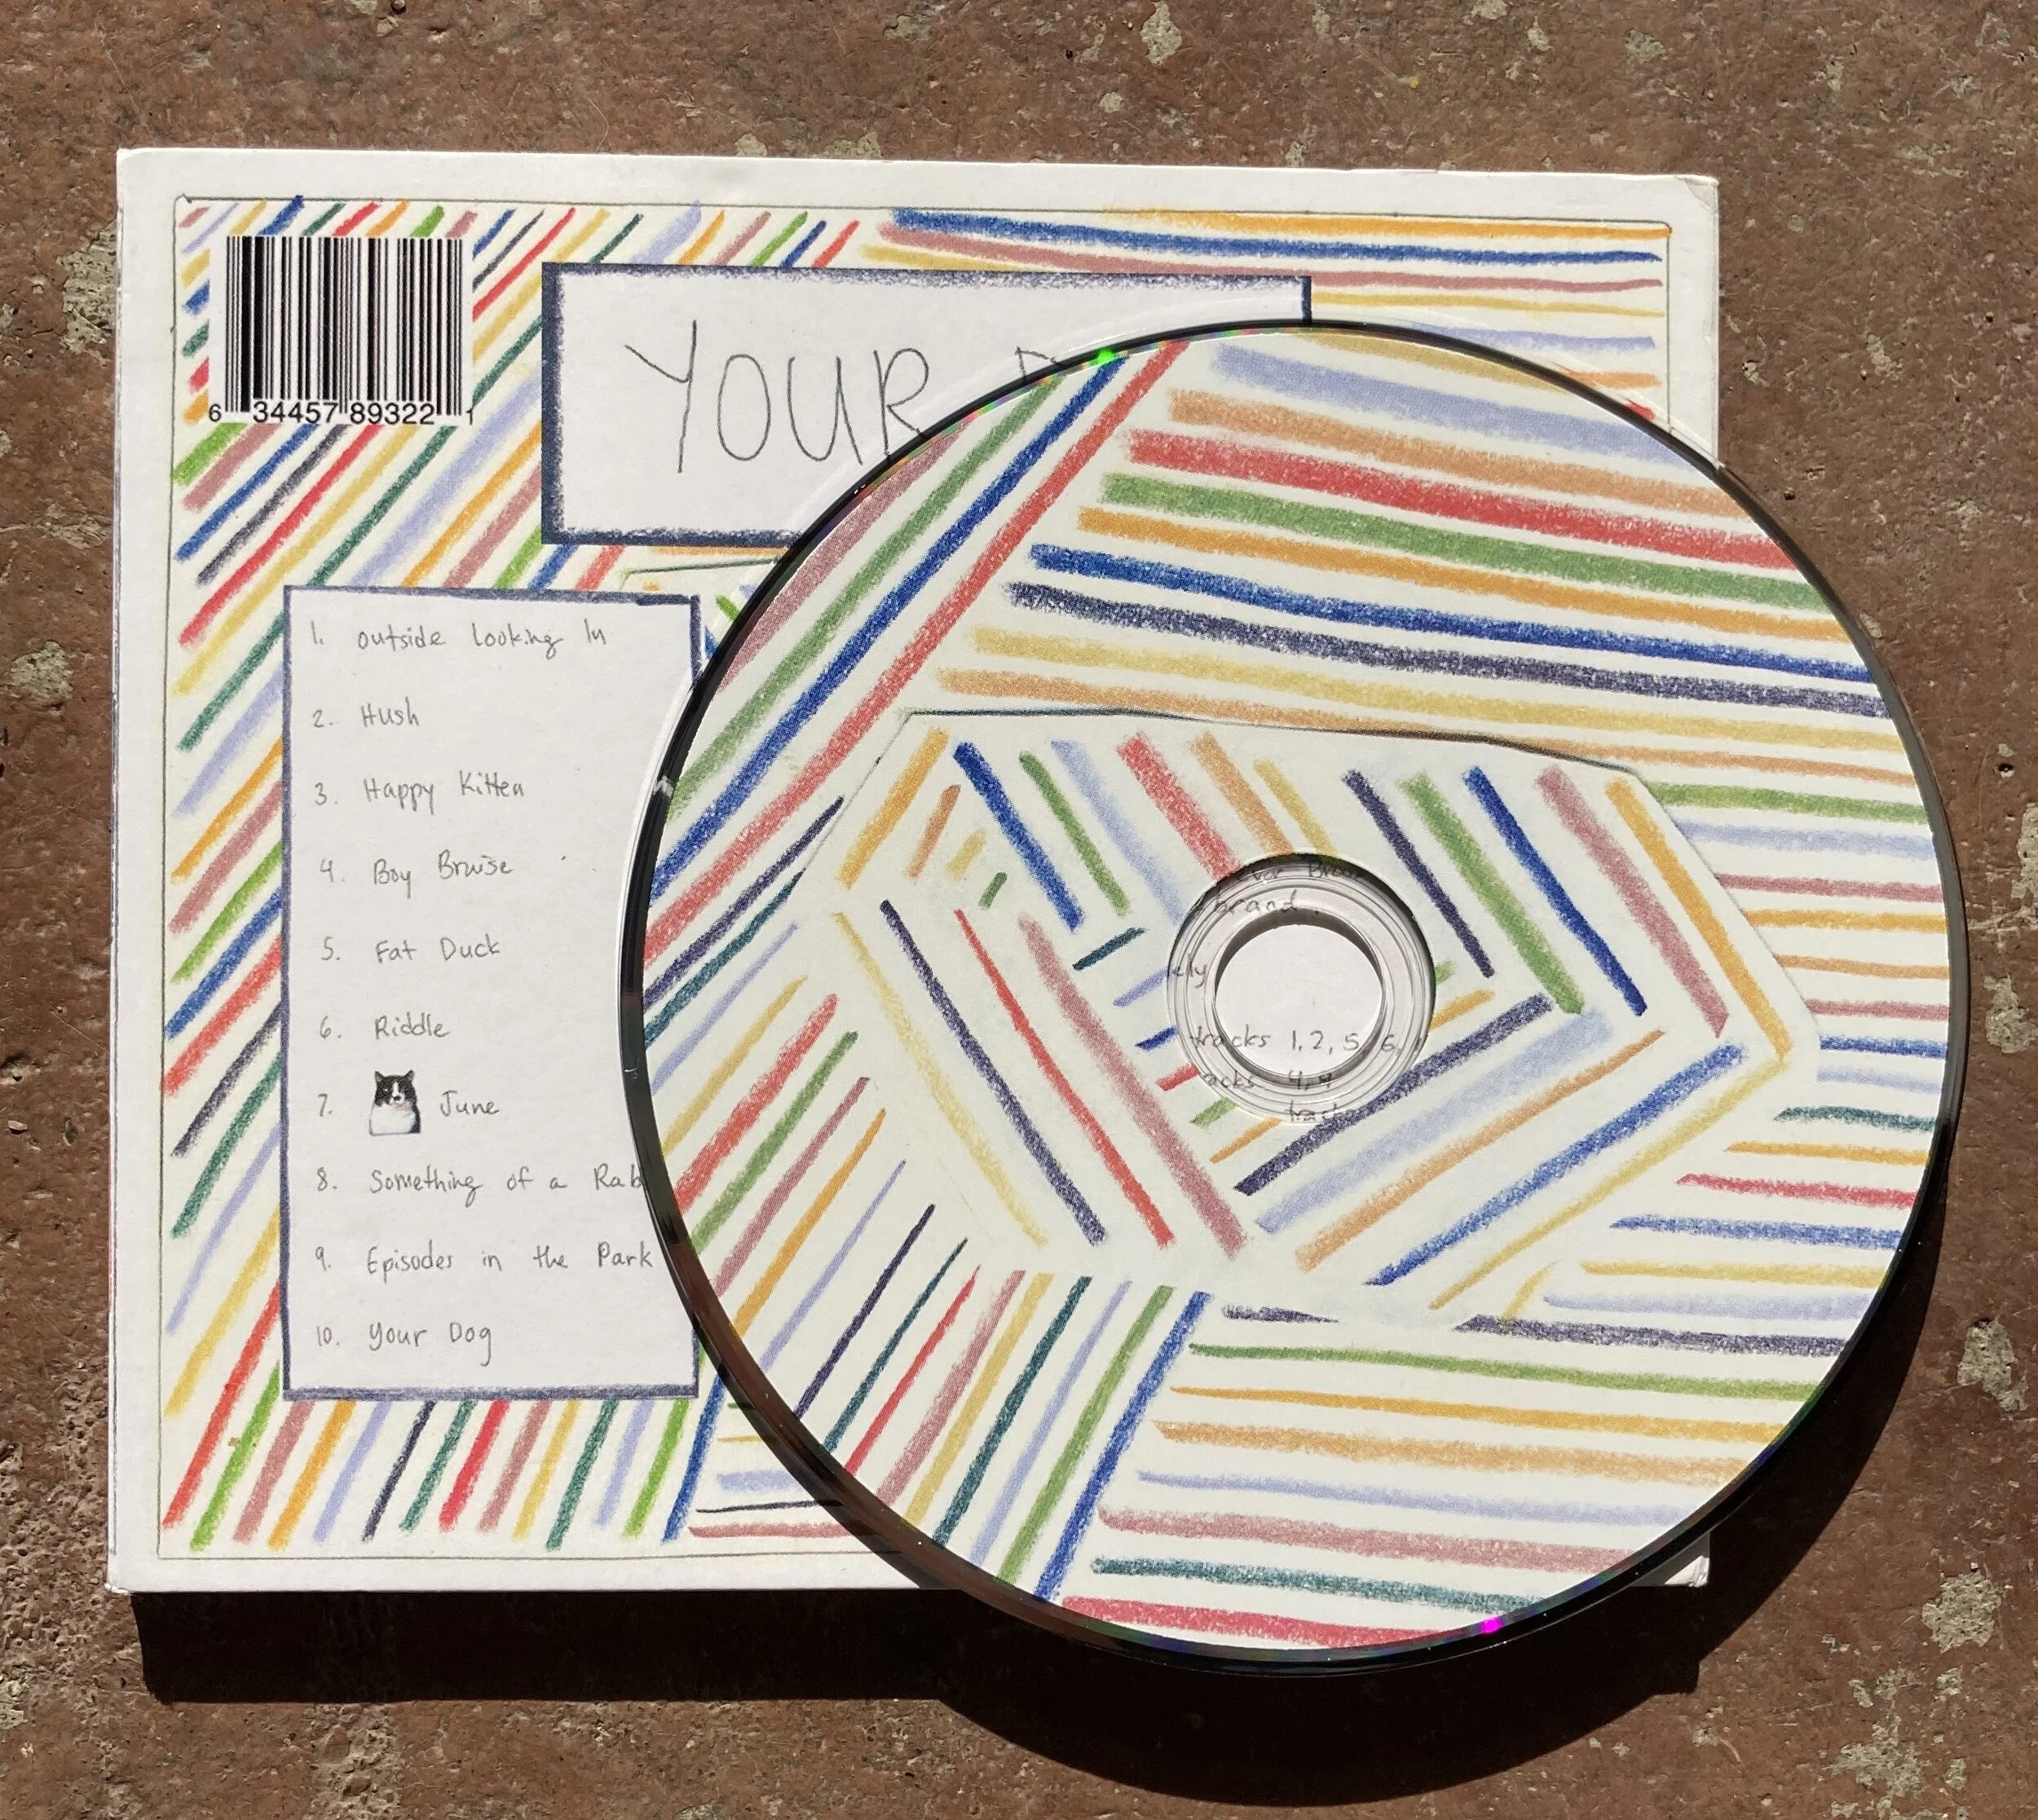 6 34457 89322 1
YOUR
1. outside Looking In
2. Hush
3. Happy Kitten
4. Boy Bruise
5. Fat Duck
6. Riddle
7. June
8. Something of a Rab
9. Episodes in the Park
10. Your Dog
brand.
tracks 1, 2, 5, 6,
4, 9